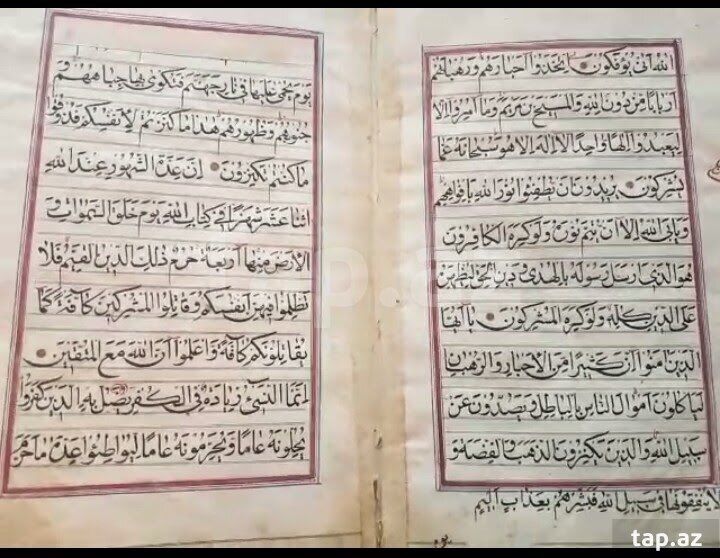 الله انى يؤفكون اتخذوا احبارهم ورهبانهم
اربابا من دون الله والمسيح بن مريم وما امروا الا
ليعبدوا الها واحدا لا اله الا هو سبحانه عما
يشركون يريدون ان يطفئوا نور الله بافواههم
ويابى الله الا ان يتم نوره ولو كره الكافرون
هو الذى ارسل رسوله بالهدى ودين الحق ليظهره
على الدين كله ولو كره المشركون يا ايها
الذين امنوا ان كثيرا من الاحبار والرهبان
لياكلون اموال الناس بالباطل ويصدون عن
سبيل الله والذين يكنزون الذهب والفضة و
لا ينفقونها فى سبيل الله فبشرهم بعذاب اليم
يوم
يوم يحمى عليها فى نار جهنم فتكوى بها جباههم و
جنوبهم وظهورهم هذا ما كنزتم لانفسكم فذوقوا
ما كنتم تكنزون ان عدة الشهور عند الله
اثنا عشر شهرا فى كتاب الله يوم خلق السموات و
الارض منها اربعة حرم ذلك الدين القيم فلا
تظلموا فيهن انفسكم وقاتلوا المشركين كافة كما
يقاتلونكم كافة واعلموا ان الله مع المتقين
انما النسىء زيادة فى الكفر يضل به الذين كفروا
يحلونه عاما ويحرمونه عاما ليواطئوا عدة ما حرم
tap.az
tap.az